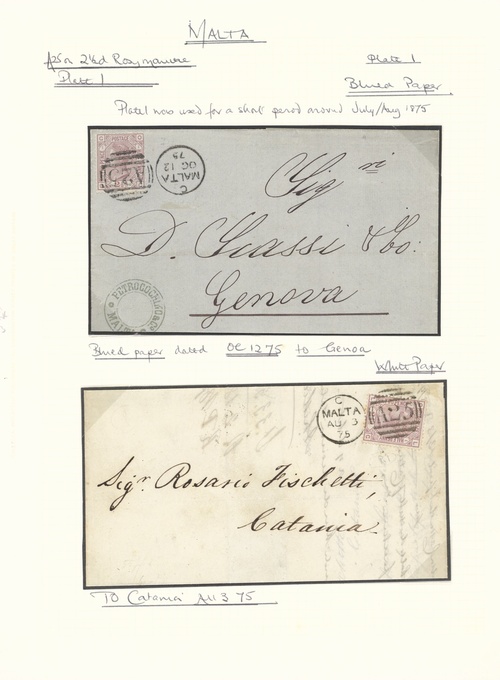 MALTA
2½d Rosy mauve
Plate 1
Plate 1
Blued Paper.
Plate 1 was used for a short period around July/Aug 1875
A25
C
MALTA
OC 12
75
Sigri
D. Scassi & Co:
Genova
PETROCOCHINO & Co
MALTA
Blued paper dated OC 12 75 to Genoa
White Paper
C
MALTA
AU 3
75
A25
Sigr. Rosario Fischetti,
Catania.
To Catania AU 3 75